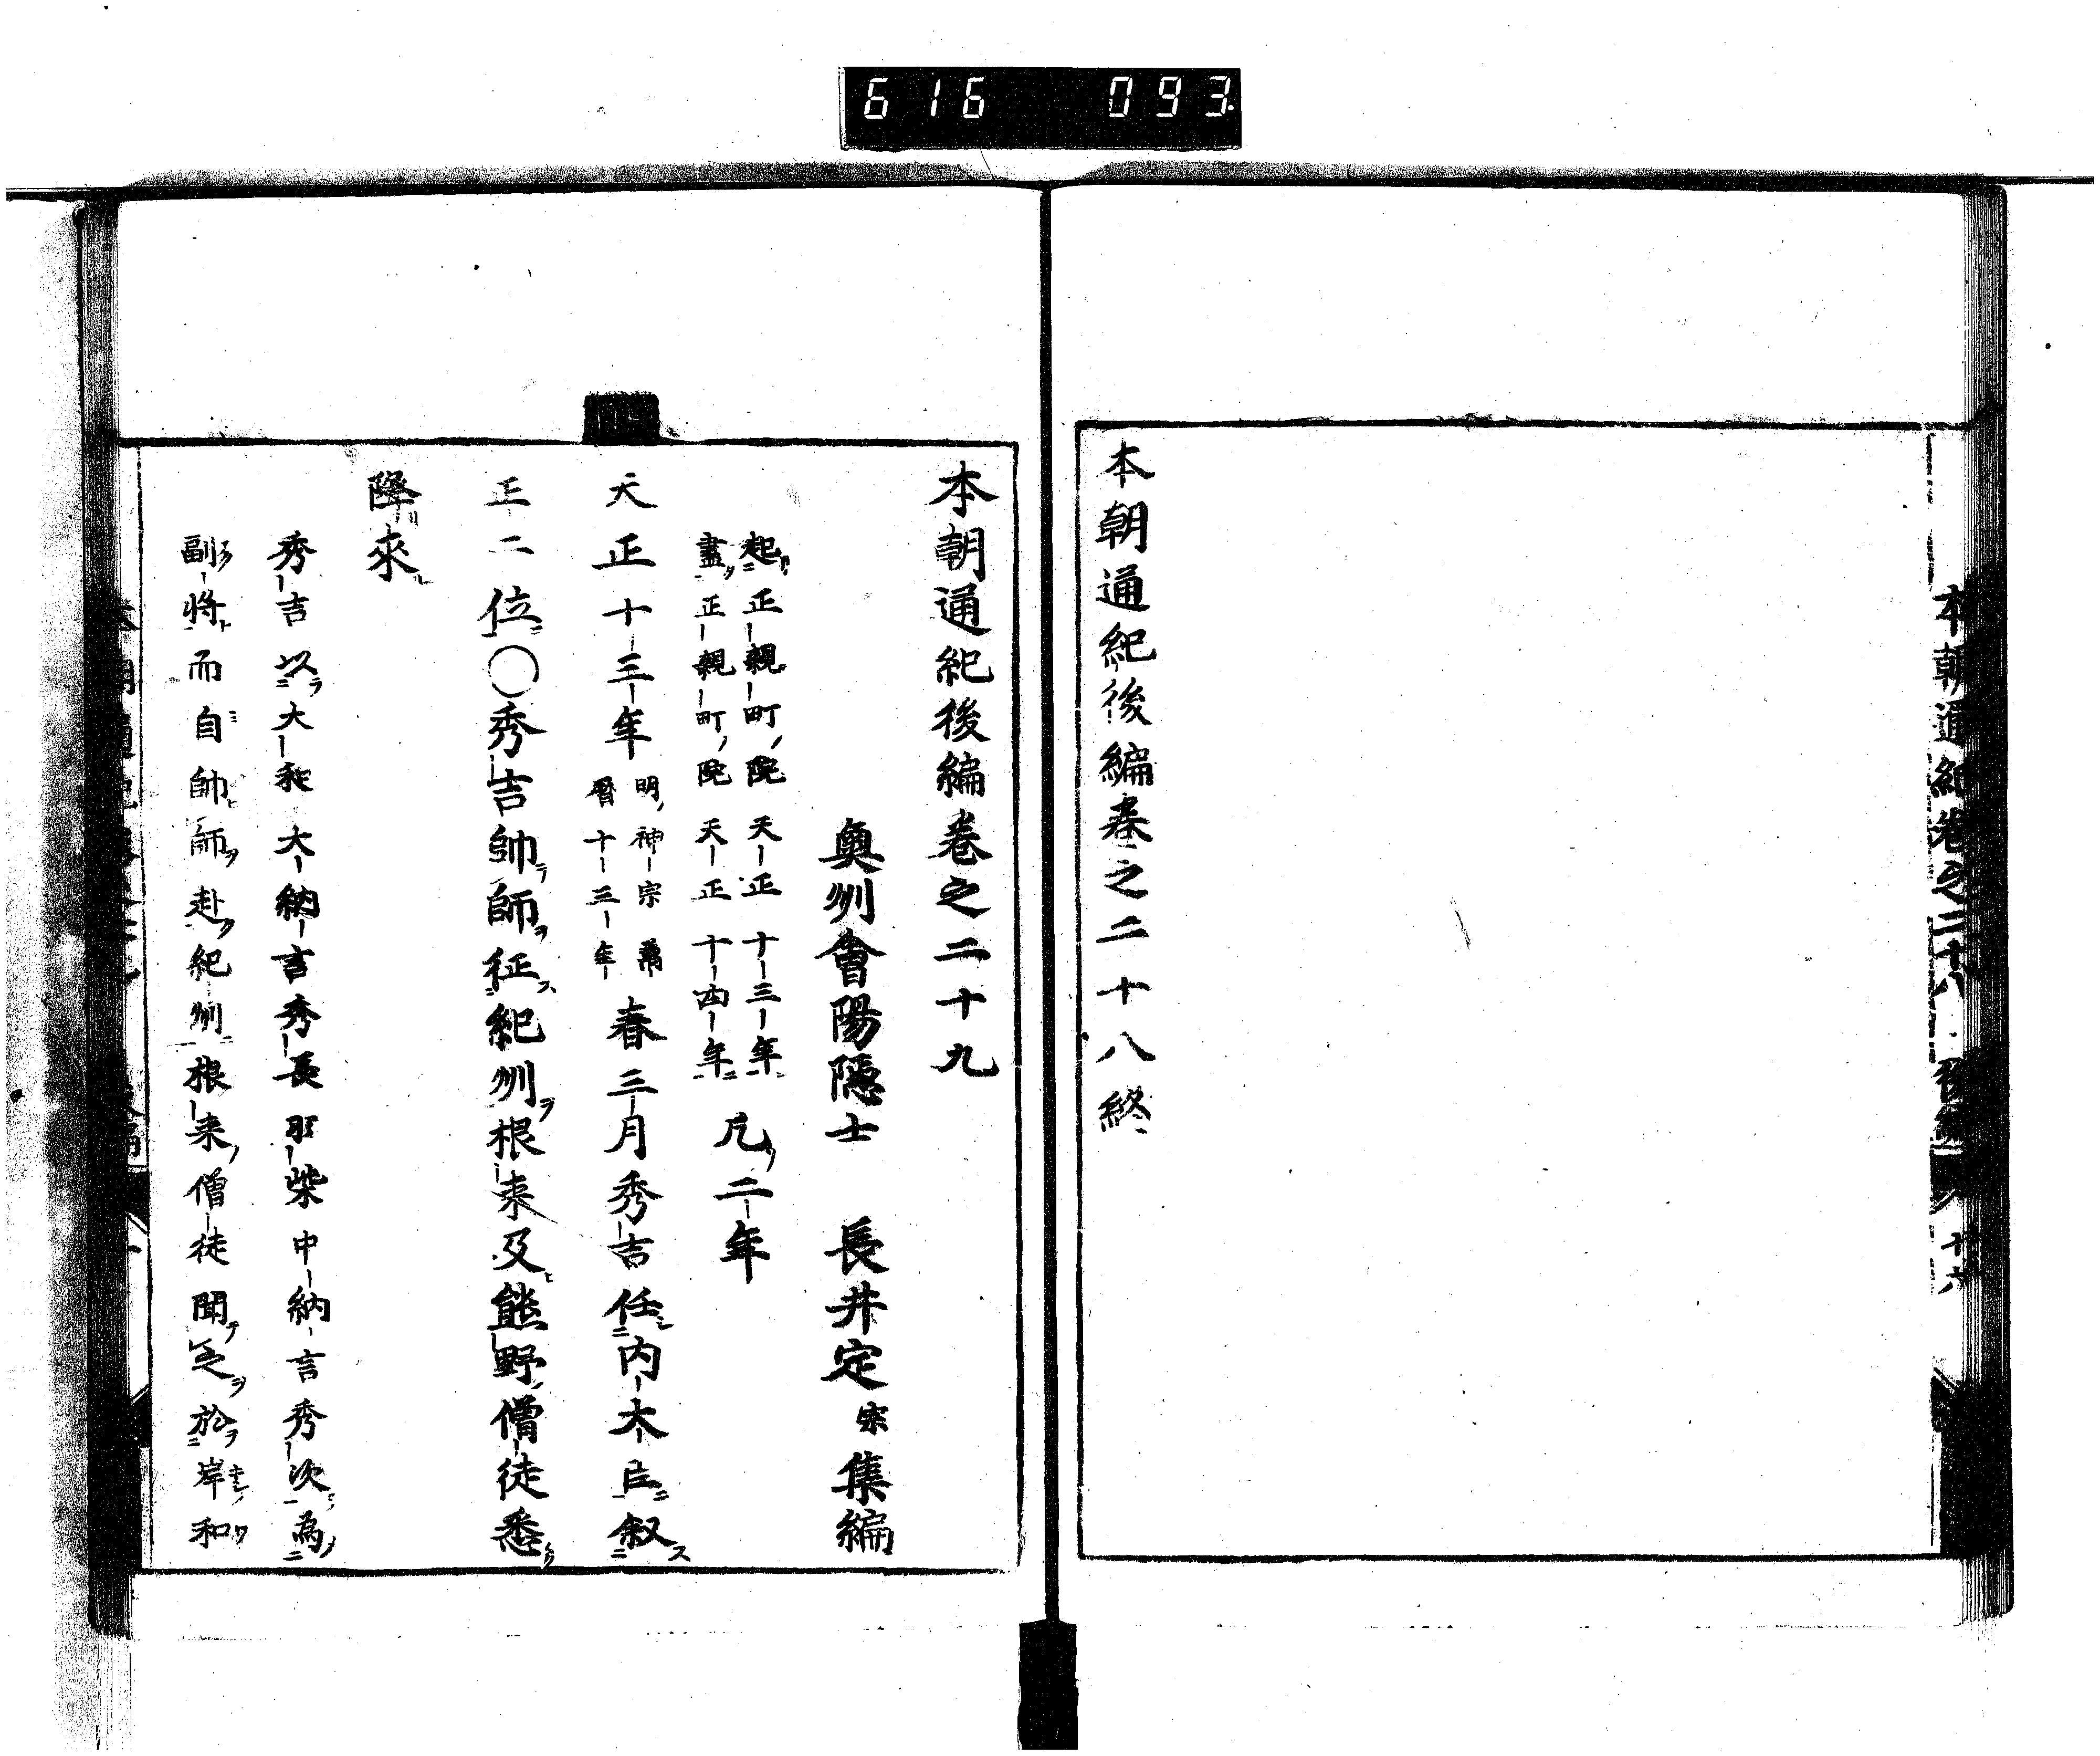 616 093
本朝通紀卷之二十八 後編
本朝通紀後編卷之二十八終
本朝通紀後編卷之二十九
奧州會陽隱士 長井定宗集編
起正親町院天正十三年
盡正親町院天正十四年
凡二年
天正十三年
明神宗萬
曆十三年
春三月秀吉任内大臣叙
正二位〇秀吉帥師征紀州根来及熊野僧徒悉
降來
秀吉以大和大納言秀長羽柴中納言秀次為
副将而自帥師赴紀州根来僧徒聞之於岸和